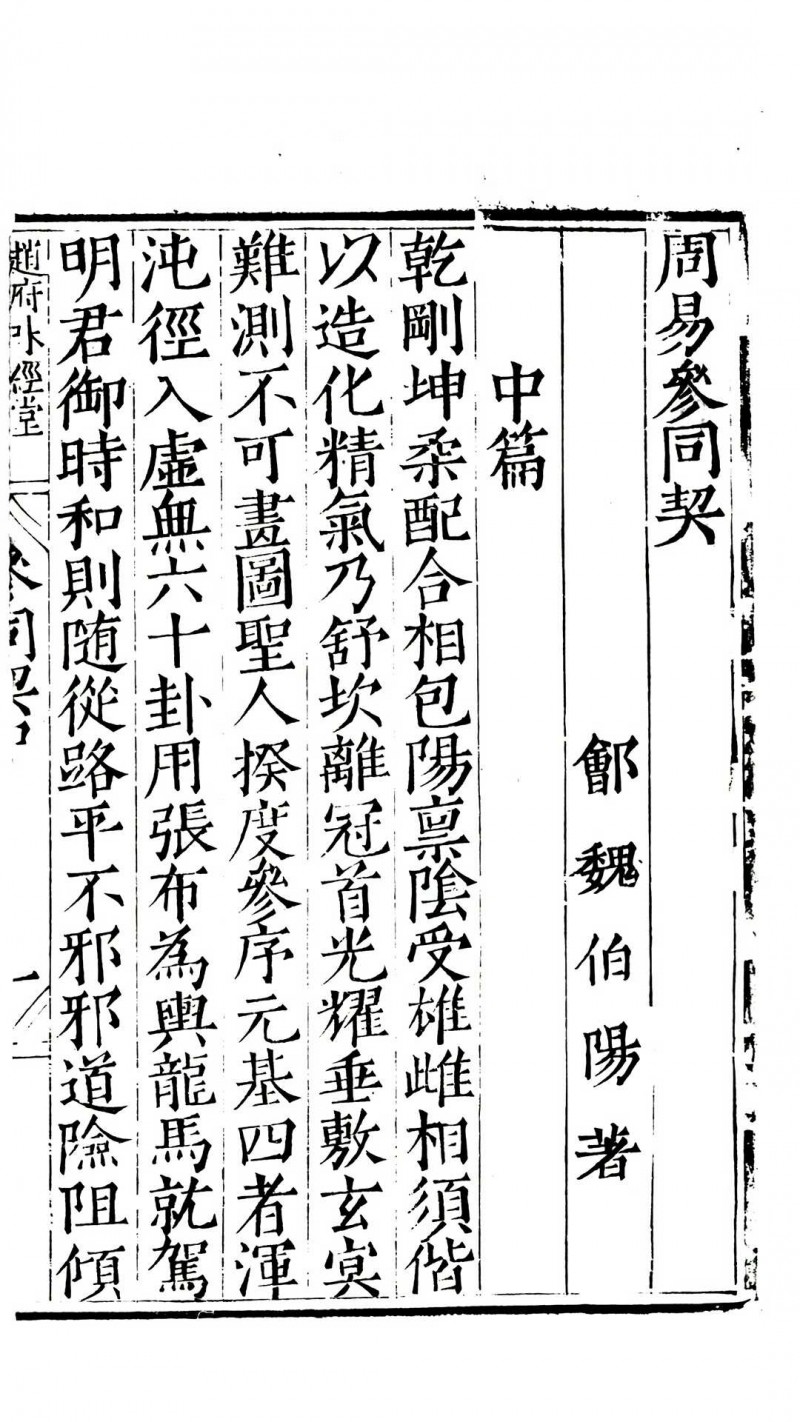 周易參同契
鄶魏伯陽著
中篇
乾剛坤柔配合相包陽禀陰受雄雌相須偕
以造化精氣乃舒坎離冠首光耀垂敷玄㝠
難測不可畫圖聖人揆度參序元基四者渾
沌徑入虛無六十卦用張布為輿龍馬就駕
明君御時和則随從路平不邪邪道險阻傾
趙府外經堂
參同契中
一